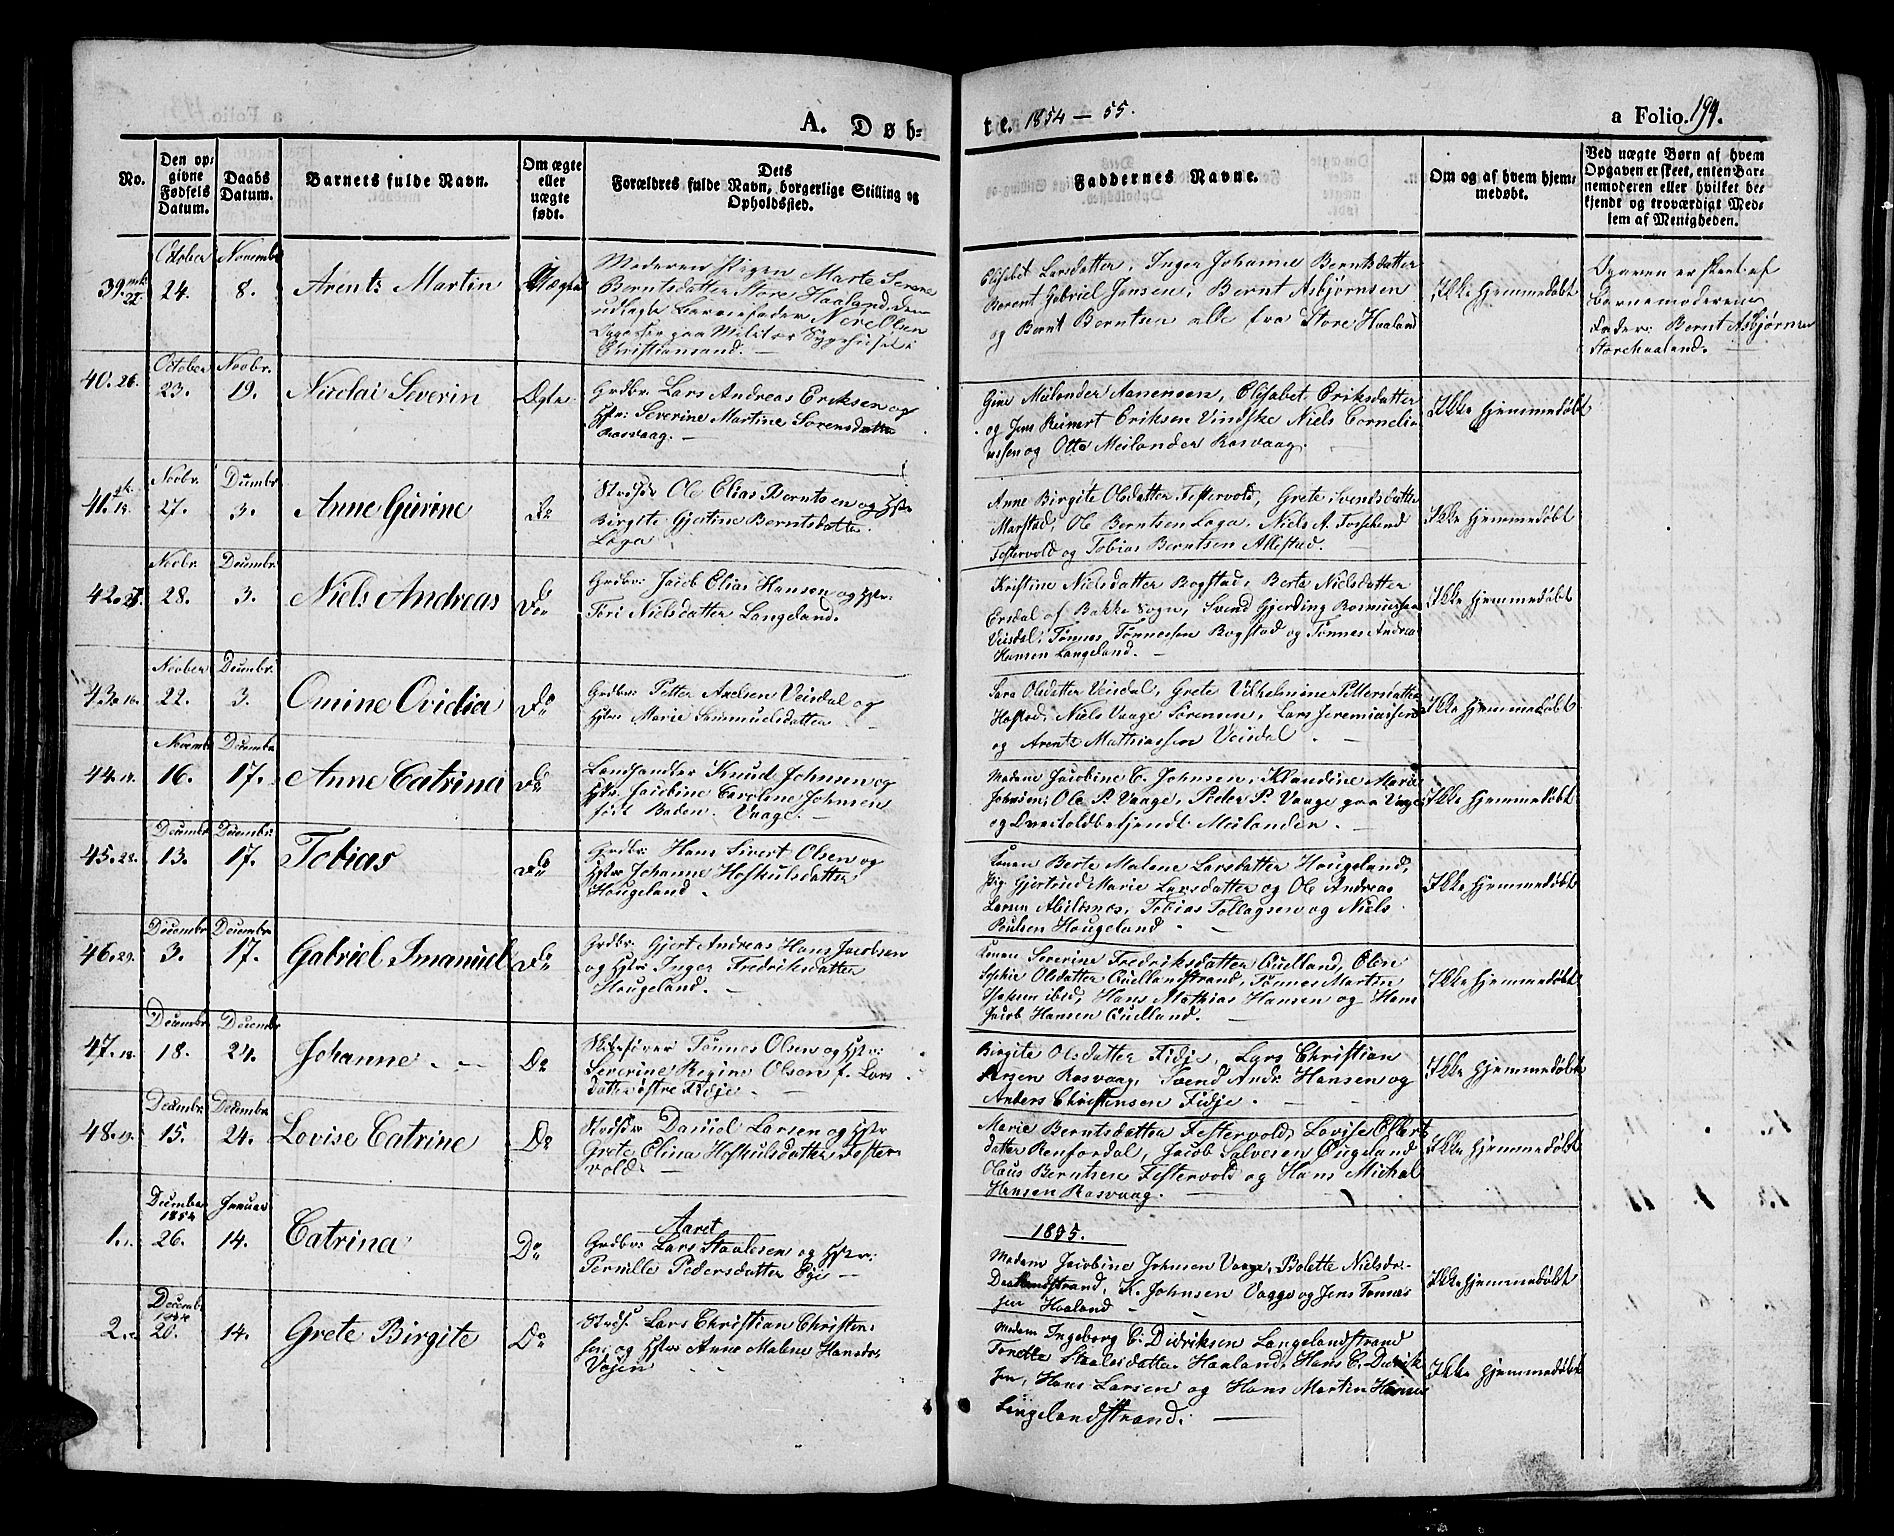 A. Døb-
te. 1854 – 55.
a Folio. 194.
No.
Den op-
givne
Fødsels
Datum.
Daabs
Datum.
Barnets fulde Navn.
Om ægte
eller
uægte
født.
Dets
Forældres fulde Navn, borgerlige Stilling og
Opholdssted.
Faddernes Navne.
Om og af hvem hjem-
medøbt.
Ved uægte Børn af hvem
Opgaven er skeet, enten Bar-
nemoderen eller hvilket be-
kjendt og troværdigt Med-
lem af Menigheden.
39.
October
24.
Novembr
8.
Arent Martin
Uægte
Moderen Pigen Marte Serene
Berntsdatter Store Haaland, den
udlagte Barnefader Ole Olsen
paa Militær Sygehuset i
Christiansand. –
Elisabet Larsdatter, Inger Johanne Berntsdatter
Berent Gabriel Jansen, Bernt Asbjørnsen
og Bernt Berntsen alle fra Store Haaland
Ikke hjemmedøbt
Opgaven er skeet af
Barnemoderens
Fader: Bernt Asbjørnsen
Storehaaland. –
40. 26.
October
23.
Novbr.
19.
Nicolai Severin
Ægte
Grdbr: Lars Andreas Eriksen og
Hstr: Severine Martine Sørensdatter
Rosvaag. –
Gine Meilander Aanensen, Elisabet Eriksdatter
og Jens Reinert Eriksen Vindske Niels Corneli-
ussen og Otto Meilander Rosvaag.
Ikke hjemmedøbt
41.
Novbr.
27.
Decembr
3.
Anne Gurine
Do
Strdsr Ole Elias Berntsen og Hstr
Birgite Gjertine Berntsdatter
Loga
Anne Birgite Olsdatter Festervold, Grete Svendsdatter
Marstad, Ole Berntsen Loga, Niels A.
Festervold og Tobias Berntsen Allestad.
Ikke hjemmedøbt
42. 27.
Novbr.
28.
Decembr.
3.
Niels Andreas
Do
Grdbr: Jacob Elias Hansen og Hstr:
Tori Nielsdatter Langeland.
Kristine Nielsdatter Bogstad, Berte Nielsdatter
Ersdal af Bakke Sogn, Svend Gjerding Rasmussen
Veisdal, Tønnes Tønnessen Bogstad og Tønnes Andreas
Hansen Langeland. –
Ikke hjemmedøbt
43. 16.
Novber
22.
Decembr.
3.
Omine Ovidia
Do
Grdbr: Petter Axelsen Veisdal og
Hstr: Marie Sammuelsdatter. –
Sara Olsdatter Veisdal, Grete Vilhelmine Pettersdatter
Hofstad, Niels Vaage Sørensen, Lars Jeremiassen
og Arent Mathiassen Veisdal. –
Ikke hjemmedøbt
44.
Novembr
16.
Decembr
17.
Anne Catrina
Do
Landhandler Knud Johnsen og
Hstr Jacobine Caroline Johnsen
født Boden. Vaage. –
Madam Jacobine C. Johnsen, Klaudine Marie
Johnsen, Ole P. Vaage, Peder P. Vaage paa Vaage
og Meilander. –
Ikke hjemmedøbt
45. 28.
Decembr
13.
Decembr.
17.
Tobias
Do
Grdbr: Hans Sivert Olsen og
Hstr Johanne Hofskulsdatter
Hougeland. –
Konen Berte Malene Larsdatter Hougeland,
Pig. Gjertrud Marie Larsdatter og Ole Andreas
Larsen Abildsnes, Tobias Tollagsen og Niels
Poulsen Hougeland –
Ikke hjemmedøbt
46. 29.
Decembr
3.
Decembr
17.
Gabriel Imanuel
Do
Grdbr: Gjert Andreas Hans Jacobsen
og Hstr Inger Fredriksdatter
Hougeland. –
Konen Severine Fredriksdatter Quelland, Olen
Sophie Olsdatter Quellandstrand, Tønnes Martin
ibid, Hans Mathias Hansen og Hans
Jacob Hansen Quelland.
Ikke hjemmedøbt
47.
Decembr
18.
Decembr
24.
Johanne. –
Do
Skibsfører Tønnes Olsen og Hstr:
Severine Regine Olsen f. Lars-
datter Østre Fidje –
Birgite Olsdatter Fidje, Lars Christian
Larsen Rosvaag, Svend Andr. Hansen og
Anders Christensen Fidje. –
Ikke hjemmedøbt
48. 19.
Decembr.
15.
Decembr
24.
Lovise Catrine
Do
Strdsdr Daniel Larsen og Hstr
Grete Elina Hofskulsdatter Fester-
vold –
Marie Berntsdatter Festervold, Lovise Ellert-
datter Renfordal, Jacob Salvesen Øugeland
Olaus Berntsen Festervold og Hans Michal
Hansen Rosvaag. –
Ikke hjemmedøbt
Aaret
1855.
1.
December
1854
26.
Januar
14.
Catrina
Do
Grdbr: Lars Staalesen og Hstr:
Pernille Pedersdatter Eje –
Madam Jacobine Johnsen Vaage, Bolette Nielsdr.
K. Johnsen Vaage og Jens Tønnes-
sen Haaland
Ikke hjemmedøbt
2.
Decembr
1854
20.
14.
Grete Birgite
Do
Strds. Lars Christian Christen-
sen og Hstr Anne Malene Hansdr.
Vøien –
Madam Ingeborg C. Didriksen Langelandstrand
Tonette Staalesdatter Haaland, Hans C. Didrik-
sen, Hans Larsen og Hans Martin Hansen
Langelandstrand. –
Ikke hjemmedøbt